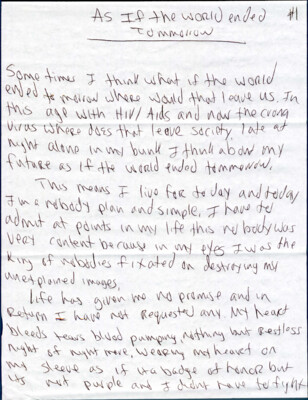 As If the world ended
tommorrow
#1
Some times I think what if the world
ended to morrow where would that leave us. In
this age with HIV/ Aids and now the crona
virus where does that leave society. late at
night alone in my bunk I think about my
future as if the world ended tommorrow.
This means I live for to day and today
I'm a nobody plan and simple. I have to
admit at points in my life this no body was
very content because in my eyes I was the
King of nobodies fixated on destroying my
unexplained images.
Life has given me no promise and in
Return I have not requested any. My heart
bleeds tears blood pumping nothing but restless
night of night more. Wearing my heart on
my sleeve as if it a badge of honor but
its not purple and I didnt have to fight